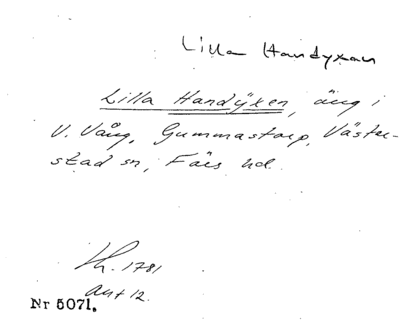 Lilla Handyxan
Lilla Handÿxen, äng i
V. Vång, Gummastorp, Väster-
stad sn, Färs hd.
Lh. 1781
ant 12.
Nr 5071.